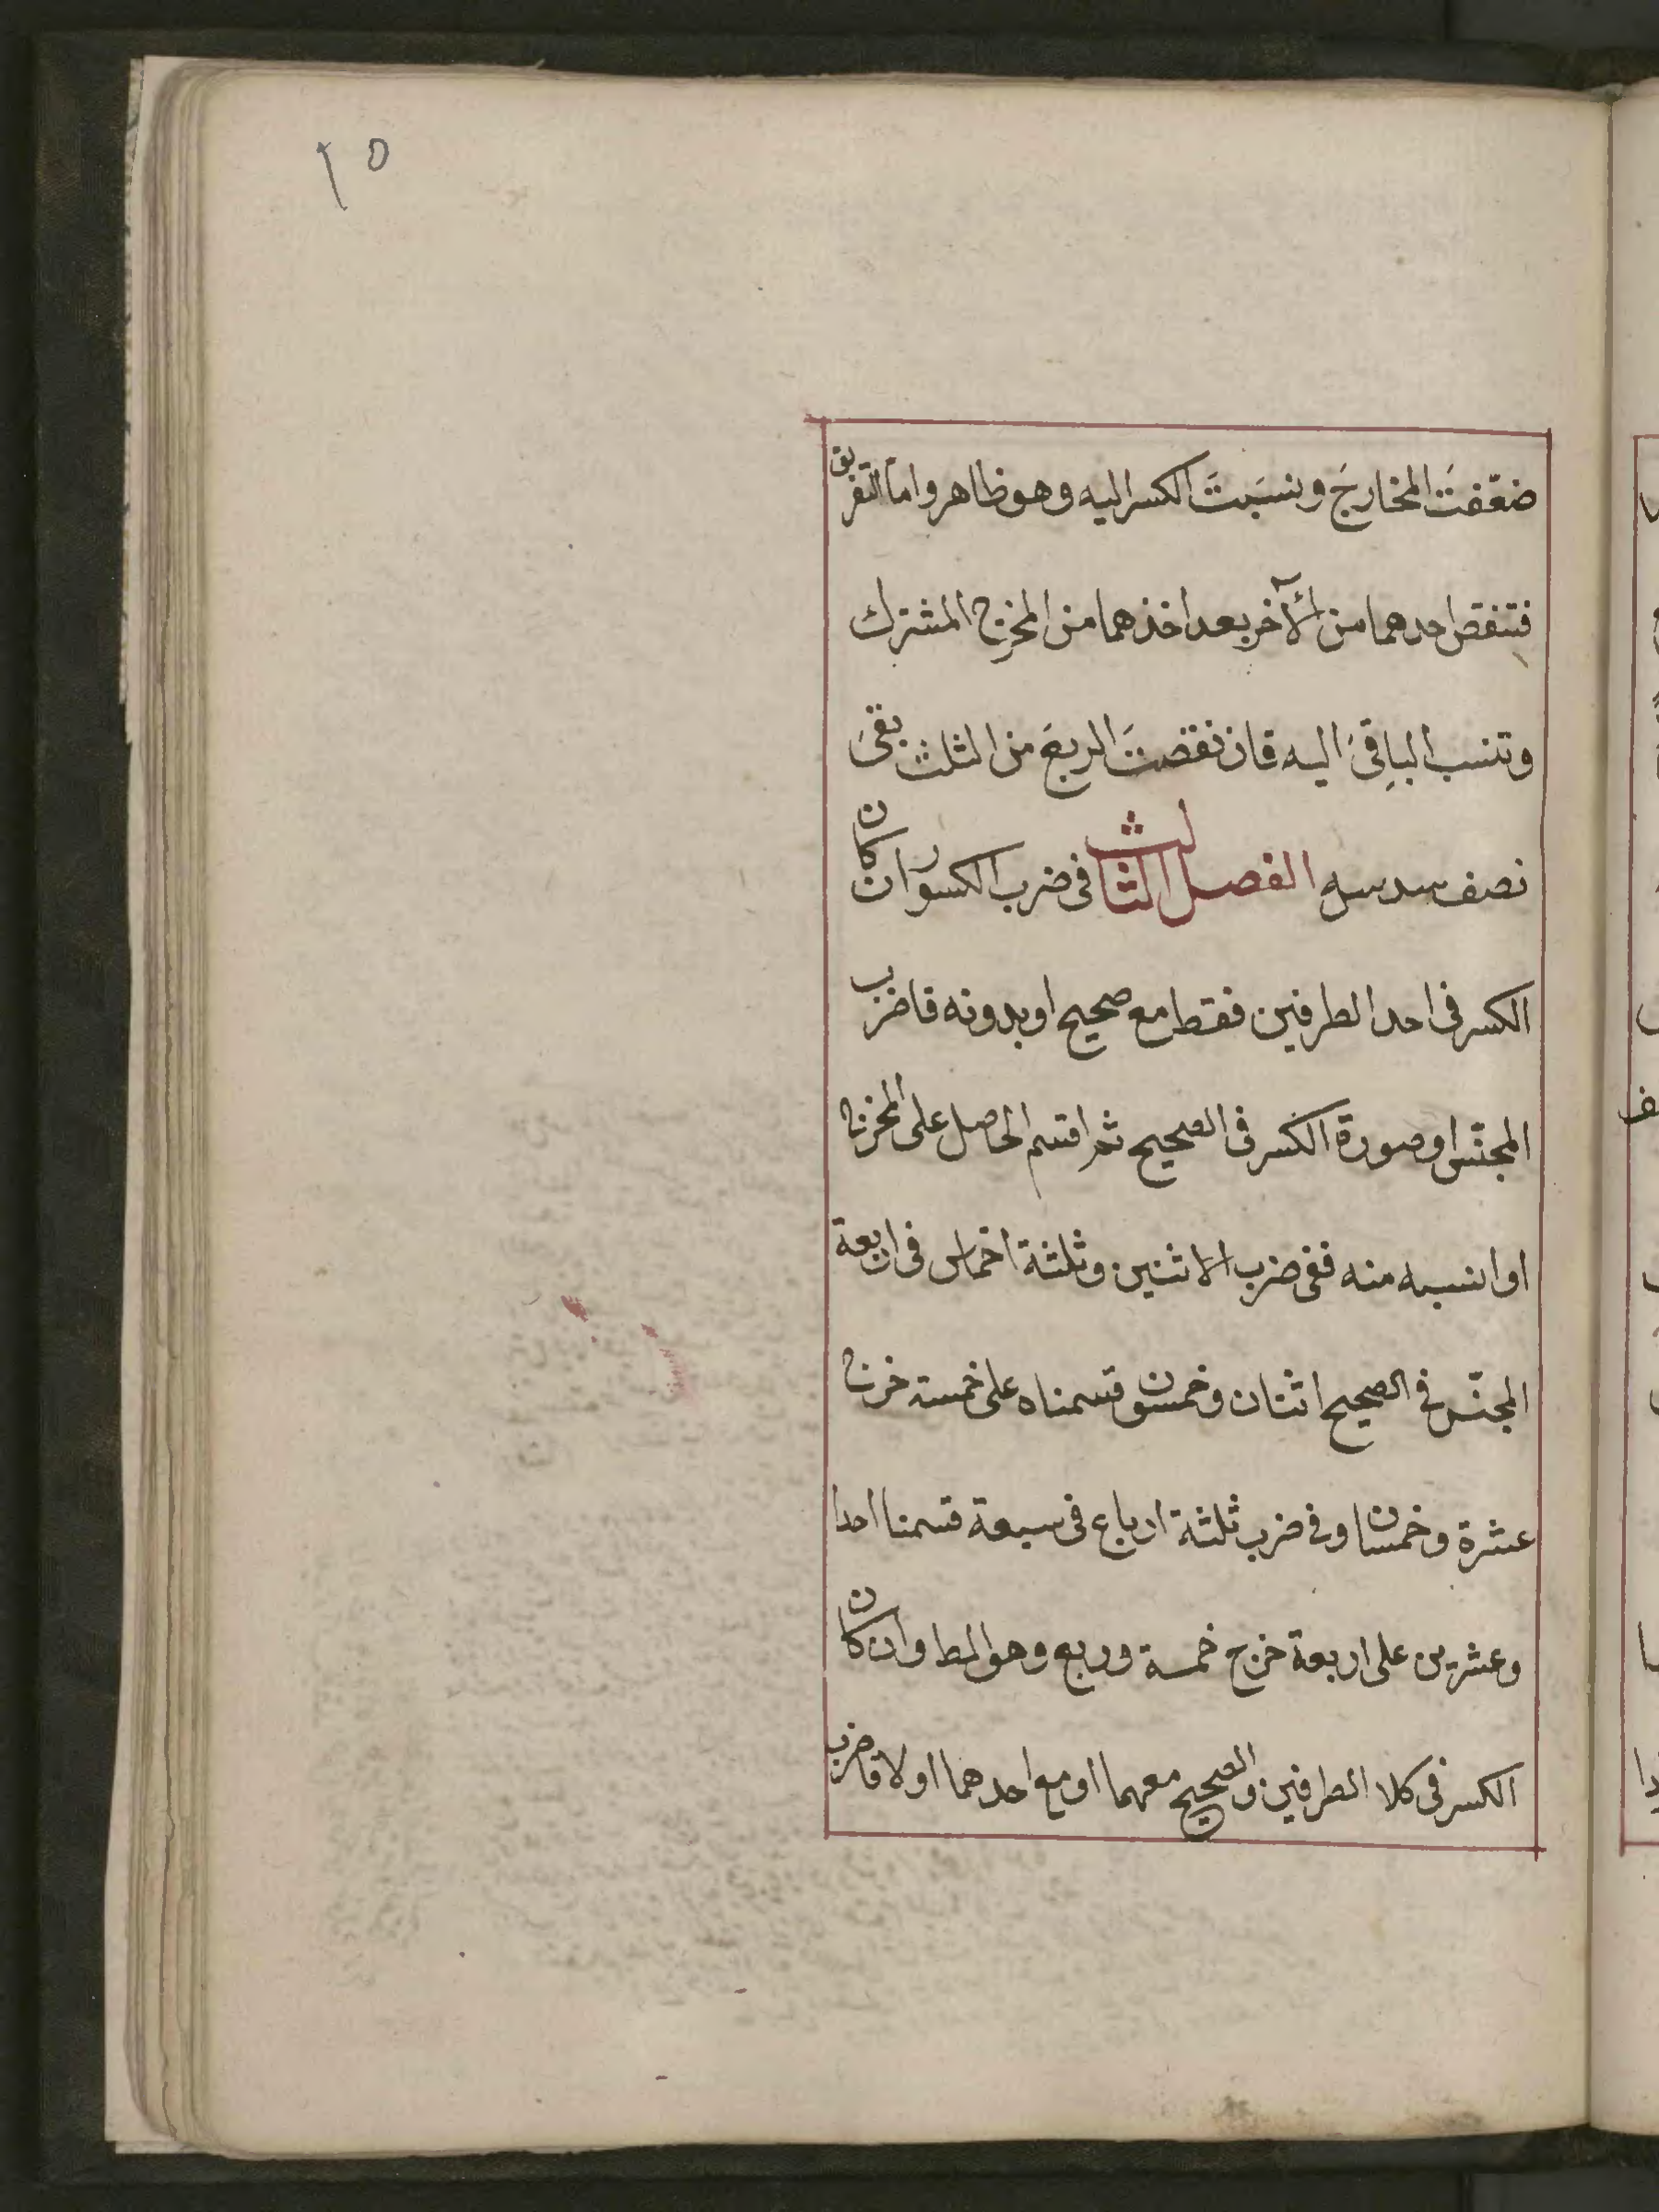 ١٥
ضعّفتَ المخارجَ ونسَبتَ الكسر اليه وهو ظاهر واما التفريق
فتنقص احدهما من الآخر بعد اخذهما من المخرج المشترك
وتنسب الباقىَ اليه فان نقصتَ الربعَ من الثلث بقى
نصف سدس الفصل الثالث فى ضرب الكسور ان كان
الكسر فى احد الطرفين فقط مع صحيح او بدونه فاضرب
المجنّس او صورة الكسر فى الصحيح ثم اقسم الحاصل على المخرج
او انسبه منه ففى ضرب الاثنين وثلثة اخماس فى اربعة
المجنّس فى الصحيح اثنان وخمسون قسمناه على خمسة خرج
عشرة وخمسان وفى ضرب ثلثة ارباع فى سبعة قسمنا احدا
وعشرين على اربعة خرج خمسة وربع وهو المط وان كان
الكسر فى كلا الطرفين والصحيح معهما او مع احدهما اولا فاضرب